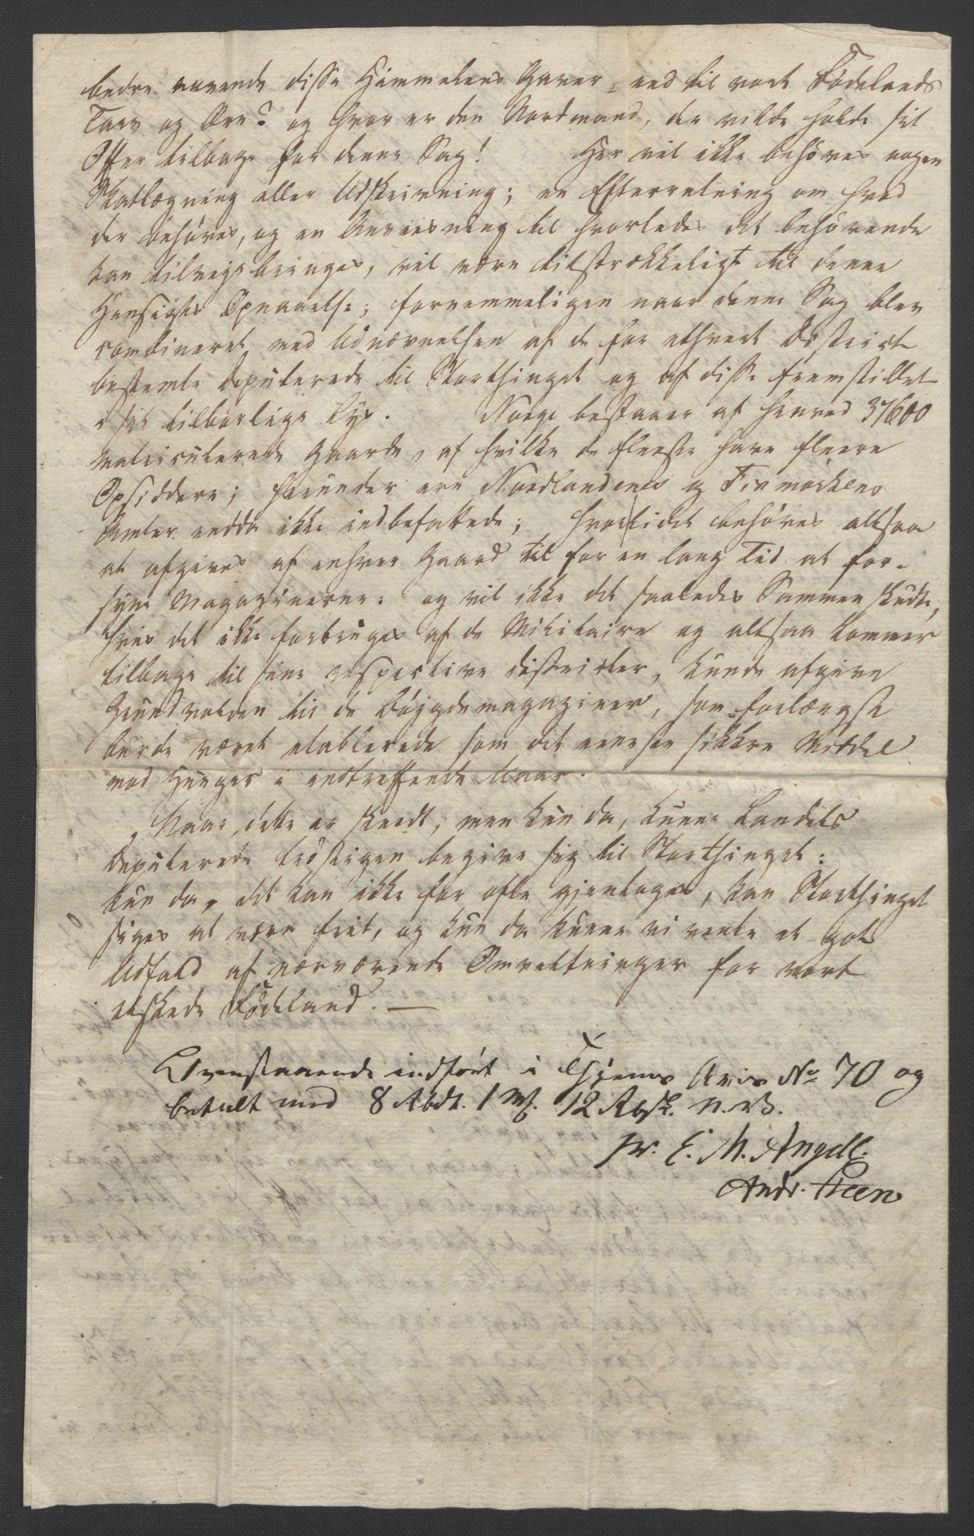 bedre anvende disse Himmelens Gaver, end til vort Fødelands
Tarv og Ære? og hvor er den Nordmand, der vilde holde sit
Offer tilbage for denne Sag! Her vil ikke behøves nogen
Skatlægning eller Udskrivning; en Efterretning om hvad
der behøves, og en Anviisning til hvorledes det behøvende
kan tilvejebringes, vil være tilstrækkeligt til denne
Hensigts Opnaaelse; fornemmeligen naar denne Sag blev
combineret med Udnævnelsen af de for ethvert District
bestemte Deputerede til Storthinget og af disse fremstillet
i sit tilbørlige Lys. Norge bestaaer af henved 37600
matriculerede Gaarde, af hvilke de fleeste have fleere
Opsiddere; herunder ere Nordlandenes og Finmarkens
Amter endda ikke indbefattede; hvorlidet behøves altsaa
at afgives af enhver Gaard til for en lang Tid at for-
syne Magazinerne: og vil ikke det saaledes Sammenskudte,
hvis det ikke forbruges af de Militaire og altsaa kommer
tilbage til sine respective districter, kunde afgive
Grundvolden til de Bøjgdemagaziner, som forlængst
burde været etablerede som det eeneste sikkre Middel
mod Hunger i indtreffende Uaar.
Naar dette er skeedt, men kun da, kunne Landets
Deputerede trøstigen begive sig til Storthinget:
kun da, det kan ikke for ofte gjentages, kan Storthinget
siges at være frit, og kun da kunne vi vente et got
Udfald af nærværende Omveltninger for vort
elskede Fødeland. —
Ovenstaaende indført i Thiems Avis No 70 og
betalt med 8 Rbdr. 1 mk. 12 Rbsk. n.v.
pr. E. M. Angell.
Andr. Steen